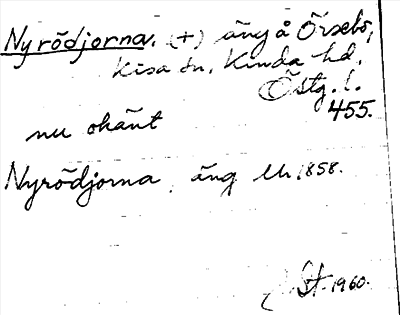 Nyrödjorna. (+) äng å Örsebo,
Kisa sn, Kinda hd,
Östg. l.
455.
nu okänt
Nyrödjorna, äng LSt. 1858.
St. 1960.